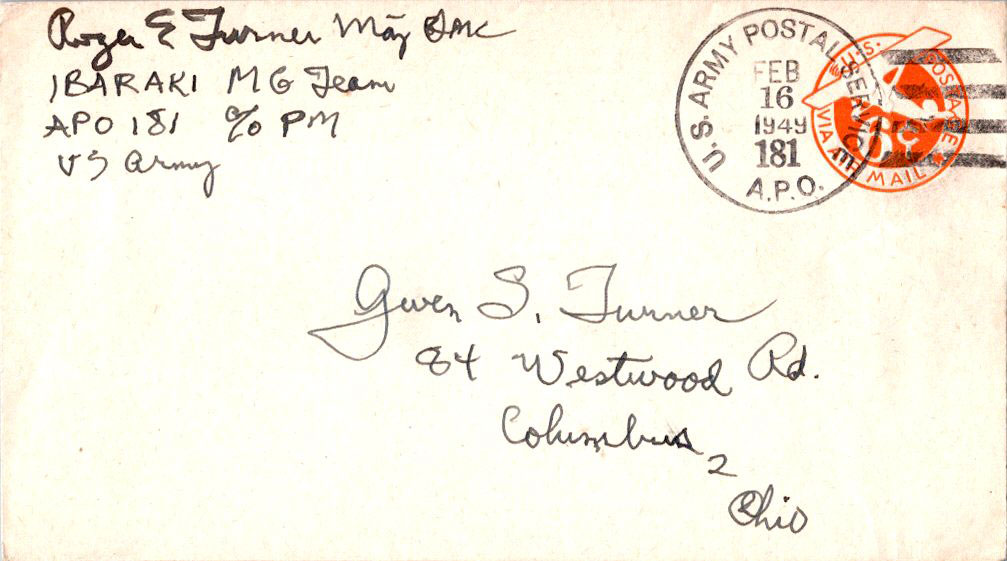 Roger E Turner Maj QMC
IBARAKI MG Team
APO 181 c/o PM
US Army
U.S. ARMY POSTAL SERVICE
FEB
16
1949
181
A.P.O.
U.S. POSTAGE
6¢
VIA AIR MAIL
Gwen S. Turner
84 Westwood Rd.
Columbus
2
Ohio